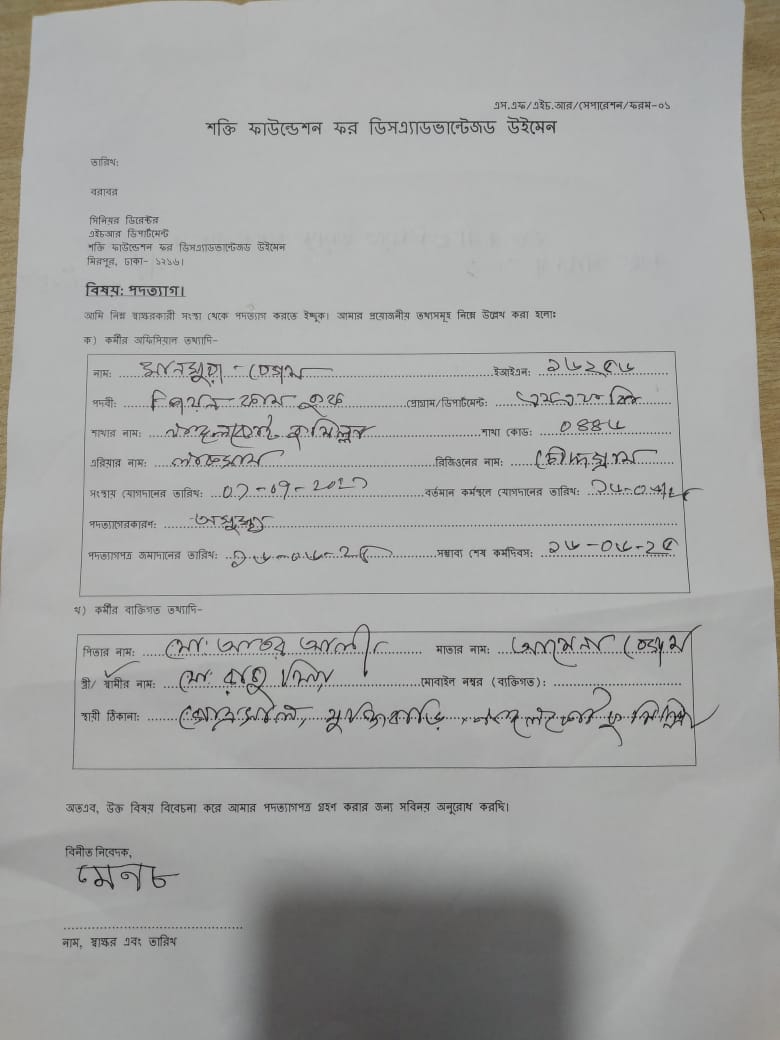 এস.এফ/এইচ.আর/সেপারেশন/ফরম-০১
শক্তি ফাউন্ডেশন ফর ডিসএ্যাডভান্টেজড উইমেন
তারিখ:
বরাবর
সিনিয়র ডিরেক্টর
এইচআর ডিপার্টমেন্ট
শক্তি ফাউন্ডেশন ফর ডিসএ্যাডভান্টেজড উইমেন
মিরপুর, ঢাকা- ১২১৬।
বিষয়: পদত্যাগ।
আমি নিম্ন স্বাক্ষরকারী সংস্থা থেকে পদত্যাগ করতে ইচ্ছুক। আমার প্রয়োজনীয় তথ্যসমূহ নিম্নে উল্লেখ করা হলো:
ক) কর্মীর অফিসিয়াল তথ্যাদি-
নাম: মানসুরা - বেগম ইআইএন: ১৬২৫৬
পদবী: পিয়ন কাম কুক প্রোগ্রাম/ডিপার্টমেন্ট:
শাখার নাম: শাখা কোড: ০৪৪৬
এরিয়ার নাম: লাকসাম রিজিওনের নাম: চৌদ্দগ্রাম
সংস্থায় যোগদানের তারিখ: বর্তমান কর্মস্থলে যোগদানের তারিখ:
পদত্যাগের কারণ: অসুস্থ্য
পদত্যাগপত্র জমাদানের তারিখ: সম্ভাব্য শেষ কর্মদিবস: ১৬-০৬-২৫
খ) কর্মীর ব্যক্তিগত তথ্যাদি-
পিতার নাম: মো: আলী মাতার নাম: আমেনা বেগম
স্ত্রী/ স্বামীর নাম: মো: মিয়া মোবাইল নম্বর (ব্যক্তিগত):
স্থায়ী ঠিকানা:
অতএব, উক্ত বিষয় বিবেচনা করে আমার পদত্যাগপত্র গ্রহণ করার জন্য সবিনয় অনুরোধ করছি।
বিনীত নিবেদক,
নাম, স্বাক্ষর এবং তারিখ